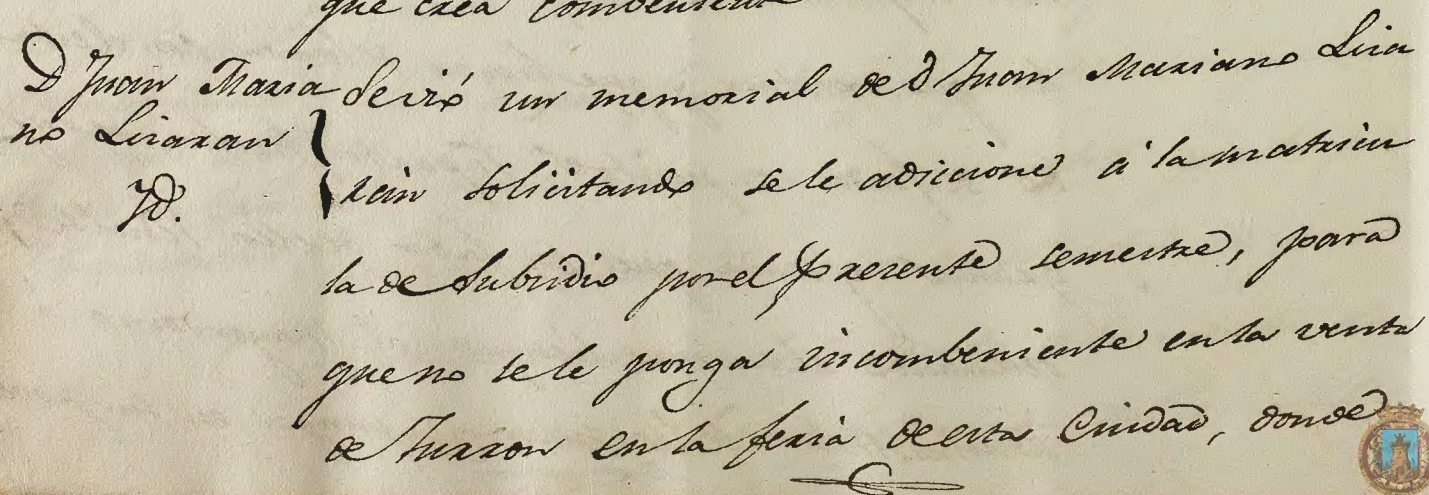 que crea combeniente
D Juan Maria
no Liaran
Yd.
Se vió un memorial de D Juan Mariano Licia
ran solicitando se le adiccione á la matricu
la de Subsidio por el presente semestre, para
que no se le ponga incombeniente en la venta
de Turron en la feria de esta Ciudad, donde